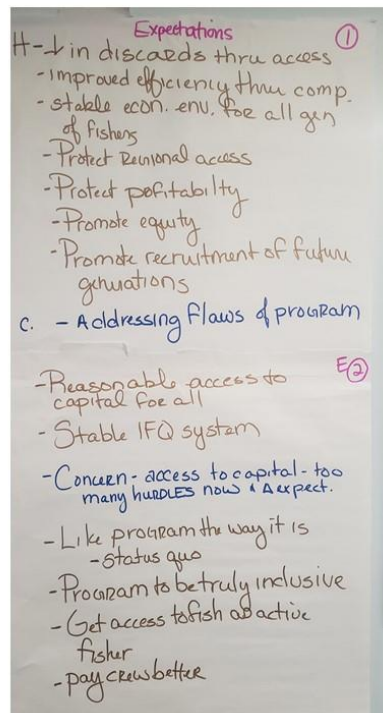 Expectations
①
H - ↓ in discards thru access
- Improved efficiency thru comp.
- stable econ. env. for all gen
of fishers
- Protect Regional access
- Protect pofitabilty
- Promote equity
- Promote recruitment of future
genuations
C. - Addressing flaws of program
E②
- Reasonable access to
capital for all
- Stable IFQ system
- Concern - access to capital - too
many hurdles now & expect.
- Like program the way it is
- Status quo
- Program to be truly inclusive
- Get access to fish as active
fisher
- pay crew better